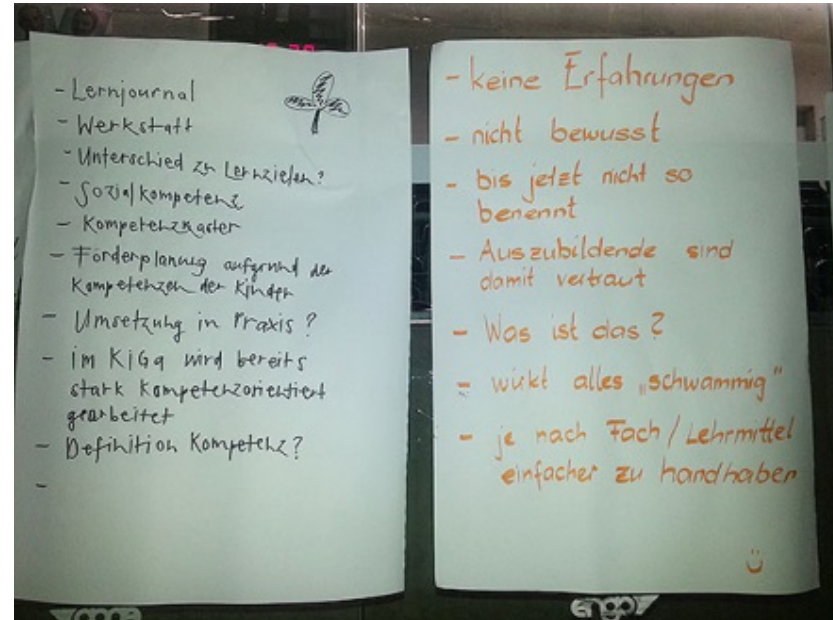 - Lernjournal
- Werkstatt
- Unterschied zu Lernzielen?
- Sozialkompetenz
- Kompetenzraster
- Förderplanung aufgrund der
Kompetenzen der Kinder
- Umsetzung in Praxis?
- im KiGa wird bereits
stark kompetenzorientiert
gearbeitet
- Definition Kompetenz?
-
- keine Erfahrungen
- nicht bewusst
- bis jetzt nicht so
benennt
- Auszubildende sind
damit vertraut
- Was ist das?
- wirkt alles „schwammig"
- je nach Fach / Lehrmittel
einfacher zu handhaben